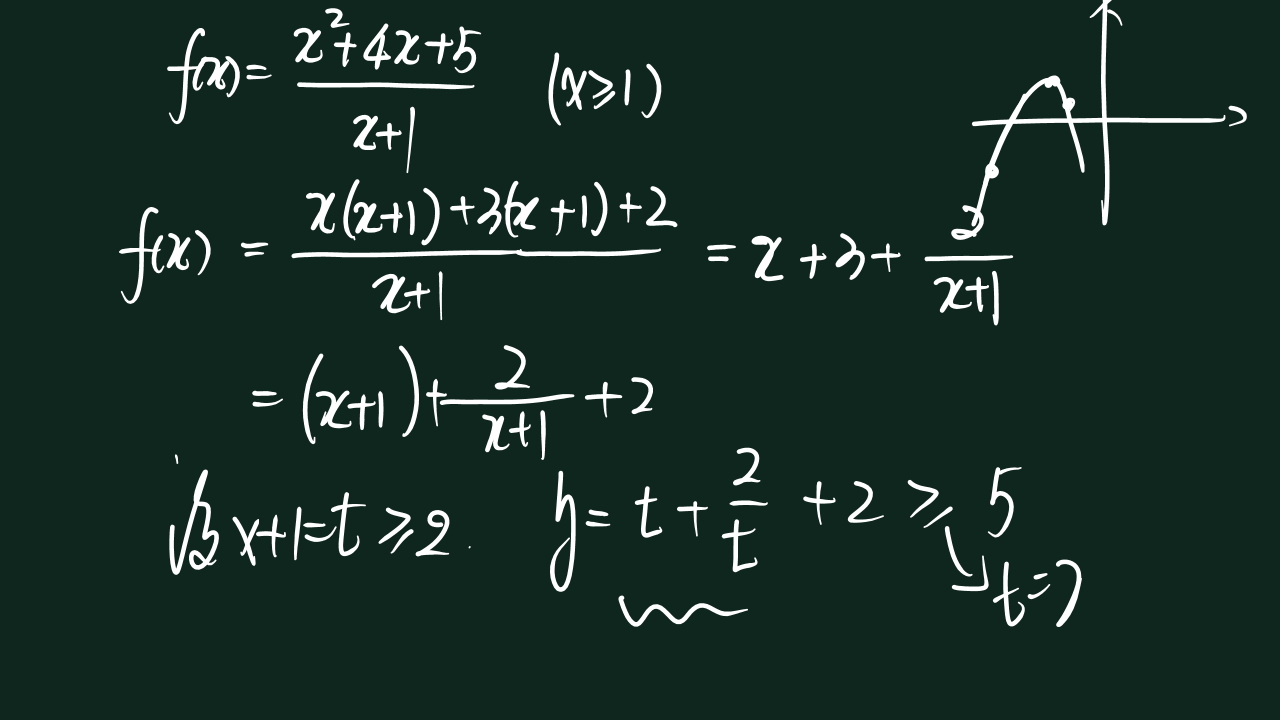 f(x) = (x²+4x+5)/(x+1) (x≥1)
f(x) = (x(x+1)+3(x+1)+2)/(x+1) = x+3+2/(x+1)
= (x+1)+2/(x+1)+2
x+1=t≥2. y=t+2/t+2≥5
t=